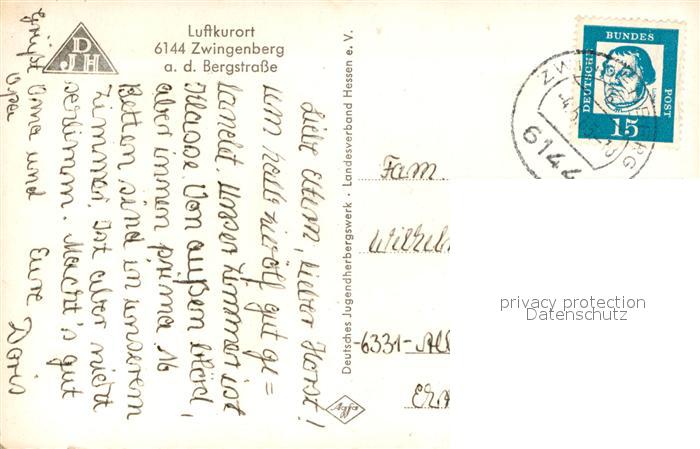 D
JH
Luftkurort
6144 Zwingenberg
a. d. Bergstraße
Liebe Eltern, lieber Horst!
um halb zwölf gut ge=
landet. Unser Zimmer ist
Klasse. Von außen blöd,
aber innen prima. 16
Betten sind in unserem
Zimmer. Ist aber nicht
schlimm. Macht's gut
Eure Doris
Grüßt Oma und
Opa
Deutsches Jugendherbergswerk · Landesverband Hessen e. V.
Agfa
DEUTSCHE
BUNDES
POST
15
ZWINGENBERG
6144
Fam.
Wilhelm
6331-
privacy protection
Datenschutz